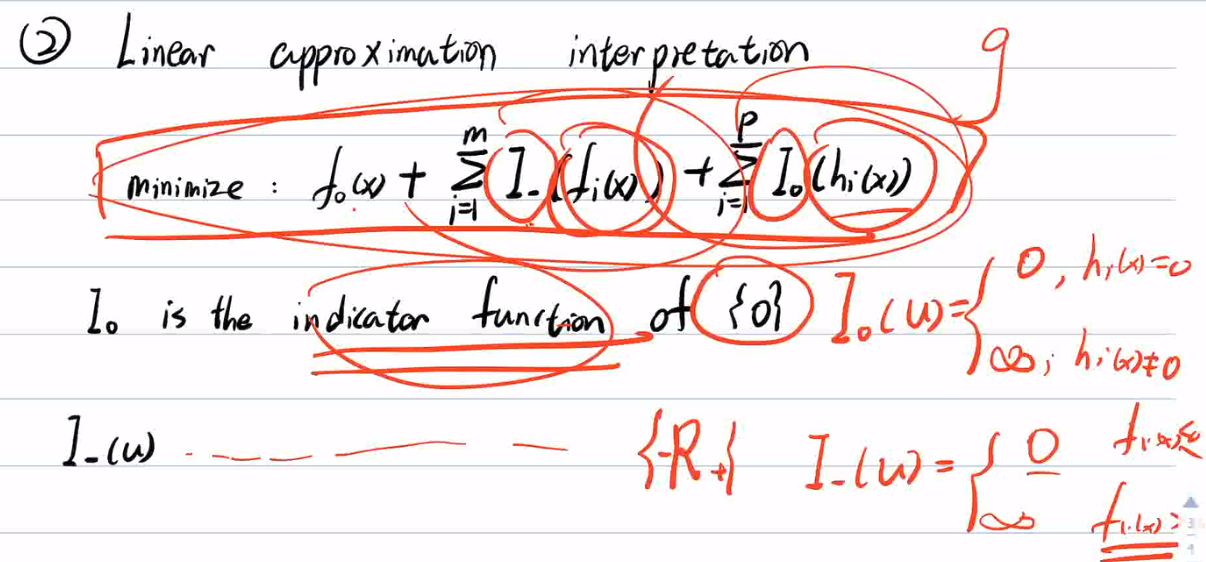 ② Linear approximation interpretation
9
minimize : f₀(x) + Σᵢ₌₁ᵐ I₋(fᵢ(x)) + Σᵢ₌₁ᵖ I₀(hᵢ(x))
I₀ is the indicator function of {0} I₀(u) = { 0, hᵢ(x)=0
∞; hᵢ(x)≠0
I₋(u) {-R₊} I₋(u) = { 0 fᵢ(x)≤0
∞ fᵢ(x)>